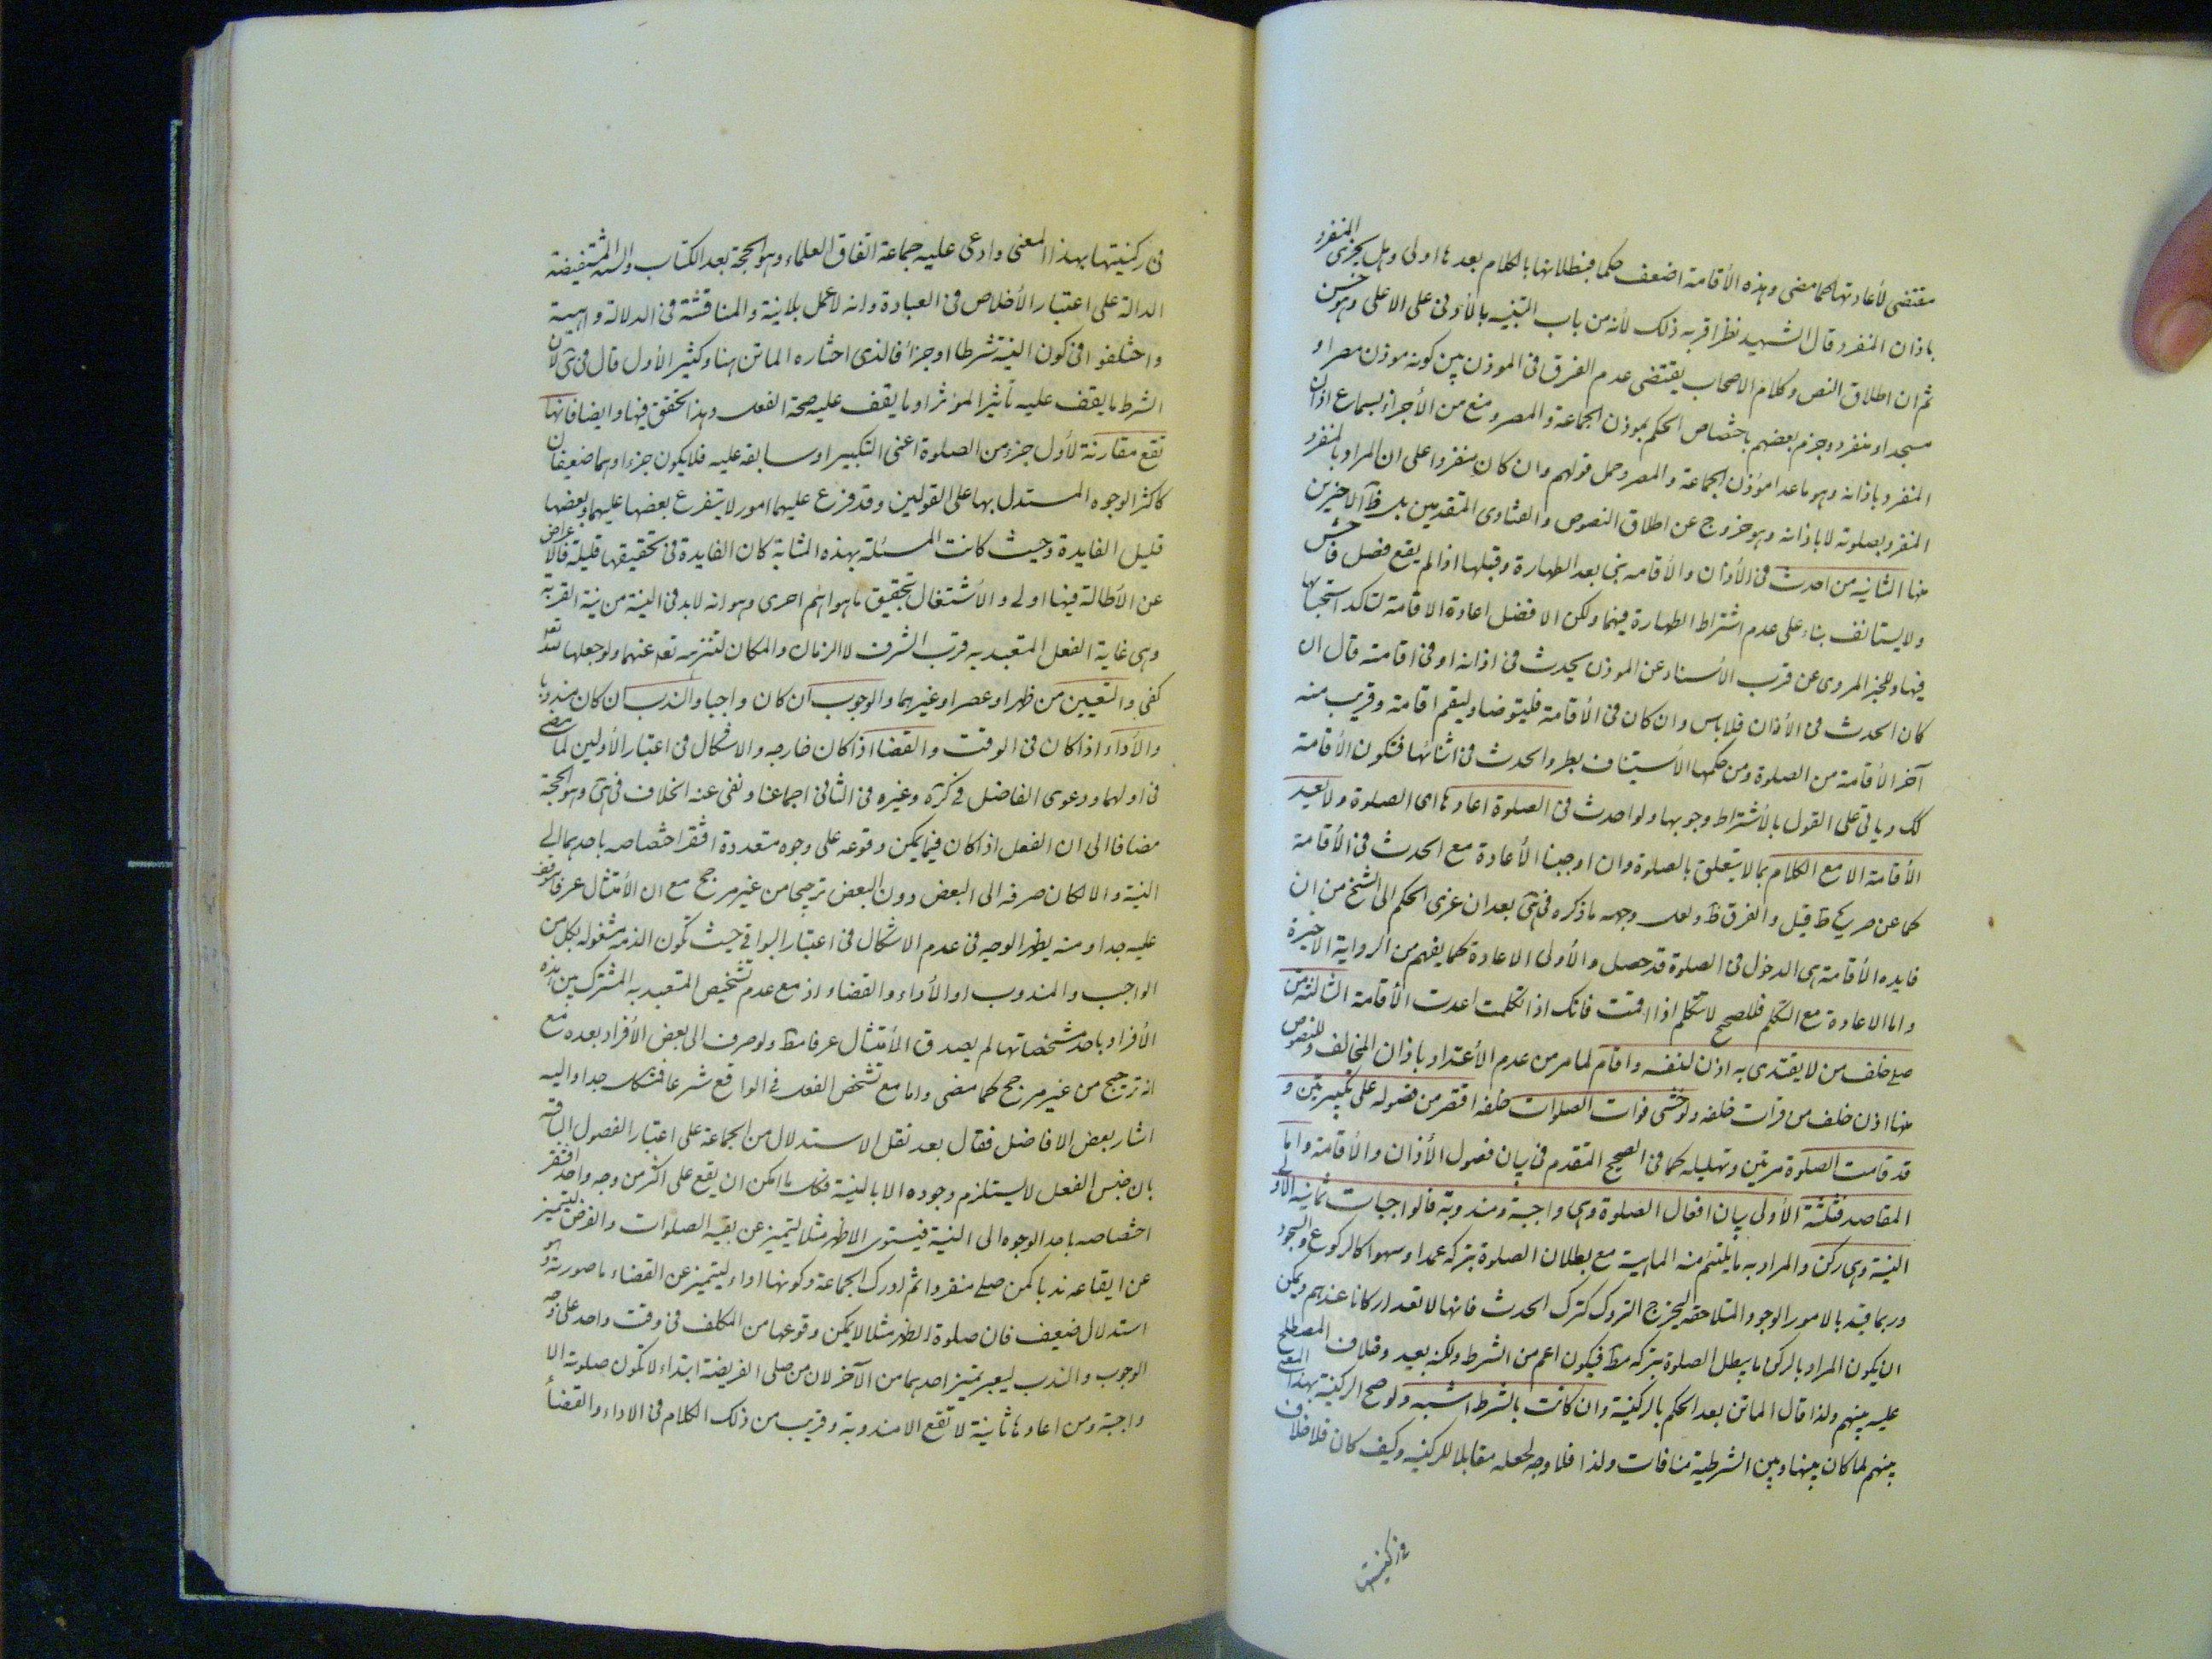 مقتضى لأعادتها كما مضى وهذه الأقامة اضعف حكما فبطلانها بالكلام بعدها اولى وهل يجزى المنفرد
باذان المنفرد قال الشهيد نظرا قربه ذلك لأنه من باب التنبيه بالأدنى على الاعلى وهو حسن
ثم ان اطلاق النص وكلام الاصحاب يقتضى عدم الفرق فى المؤذن بين كونه موذن مصر او
مسجد او منفرد وجزم بعضهم باختصاص الحكم بموذن الجماعة والمصر ومنع من الأجزاء بسماع اذان
المنفرد باذانه وهو ما عدا مؤذن الجماعة والمصر وحمل قولهم وان كان منفردا على ان المراد بالمنفرد
المنفرد بصلوته لا باذانه وهو خروج عن اطلاق النصوص والفتاوى المتقدمين بل ظ الاخيرين
منها الثانيه من احدث فى الأذان والأقامه بنى بعد الطهارة وقبلها اذا لم يقع فصل فاحش
ولا يستانف بناء على عدم اشتراط الطهارة فيهما ولكن الافضل اعادة الاقامة لتاكد استحبابها
فيها وللخبر المروى عن قرب الأسناد عن الموذن يحدث فى اذانه او فى اقامته قال ان
كان الحدث فى الأذان فلا باس وان كان فى الأقامة فليتوضا وليقم اقامة وقريب منه
آخر الأقامة من الصلوة ومن حكمها الأستيناف بطرو الحدث فى اثنائها فتكون الأقامة
كك وياتى على القول بالأشتراط وجوبها ولو احدث فى الصلوة اعادها اى الصلوة ولا يعيد
الأقامة الا مع الكلام بما لا يتعلق بالصلوة وان اوجبنا الأعادة مع الحدث فى الأقامة
كما عن صريح ط قيل والفرق ظ ولعل وجهه ما ذكره فى هى بعد ان عزى الحكم الى الشيخ من ان
فايده الأقامة هى الدخول فى الصلوة قد حصل والأولى الاعادة كما يفهم من الرواية الاخيرة
واما الاعادة مع التكلم فللصحيح لا تتكلم اذا اقمت فانك اذا تكلمت اعدت الأقامة الثالثة من
صلى خلف من لا يقتدى به اذن لنفسه واقام لما مر من عدم الأعتداد باذان المخالف وللنصوص
منها اذن خلف من قرات خلفه ولو خشى فوات الصلوات خلفه اقتصر من فصوله على تكبيرتين و
قد قامت الصلوة مرتين وتهليله كما فى الصحيح المتقدم فى بيان فصول الأذان والأقامة واما
المقاصد فثلثة الأولى بيان افعال الصلوة وهى واجبة ومندوبة فالواجبات ثمانيه الأولى
النية وهى ركن والمراد به ما يلتئم منه الماهية مع بطلان الصلوة بتركه عمدا وسهوا كالركوع والسجود
وربما قيد بالامور الوجود المتلاحقه ليخرج التروك كترك الحدث فانها لا تعد اركانا عندهم ويمكن
ان يكون المراد بالركن ما يبطل الصلوة بتركه مط فيكون اعم من الشرط ولكنه بعيد وخلاف المصطلح
عليه بينهم ولذا قال الماتن بعد الحكم بالركنية وان كانت بالشرط اشبه ولو صح الركنية بهذا المعنى
بينهم لما كان بينها وبين الشرطية منافات ولذا فلا وجه لجعله مقابلا للركنيه وكيف كان فلا خلاف
فى ركنيتها
فى ركنيتها بهذا المعنى وادعى عليه جماعة اتفاق العلماء وهو الحجة بعد الكتاب والسنة المستفيضة
الدالة على اعتبار الأخلاص فى العبادة وانه لا عمل بلا نية والمناقشة فى الدلالة واهية
واختلفوا فى كون النية شرطا او جزأ فالذى اختاره الماتن هنا وكثير الأول قال فى هى لان
الشرط ما يقف عليه تاثير المؤثر او ما يقف عليه صحة الفعل وهذا تحقق فيها وايضا فانها
تقع مقارنة لأول جزء من الصلوة اعنى التكبير او سابقه عليه فلا يكون جزءا وهما ضعيفان
كاكثر الوجوه المستدل بها على القولين وقد فرع عليهما امور لا يتفرع بعضها عليهما وبعضها
قليل الفايدة وحيث كانت المسئلة بهذه المثابة كان الفايدة فى تحقيقها قليلة فالاعراض
عن الأطالة فيها اولى والأشتغال بتحقيق ما هو اهم احرى وهو انه لا بد فى النية من نية القربة
وهى غاية الفعل المتعبد به قرب الشرف لا الزمان والمكان لتنزهه تعه عنهما ولو جعلها لله تعه
كفى والتعيين من ظهر او عصر او غيرهما والوجوب ان كان واجبا والندب ان كان مندوبا
والأداء اذا كان فى الوقت والقضا اذا كان خارجه والاشكال فى اعتبار الأولين لما مضى
فى اولهما ودعوى الفاضل فى كرة وغيره فى الثانى اجماعنا ونفى عنه الخلاف فى هى وهو الحجة
مضافا الى ان الفعل اذا كان فيما يمكن وقوعه على وجوه متعددة افتقر اختصاصه باحدهما الى
النية والا لكان صرفه الى البعض دون البعض ترجيحا من غير مرجح مع ان الأمتثال عرفا موقوف
عليه جدا ومنه يظهر الوجه فى عدم الاشكال فى اعتبار البواقى حيث تكون الذمه مشغوله بكل من
الواجب والمندوب او الأداء والقضاء اذ مع عدم تشخيص المتعبد به المشترك بين هذه
الأفراد باحد مشخصاتها لم يصدق الأمتثال عرفا مط ولو صرف الى بعض الأفراد بعده مع
انه ترجيح من غير مرجح كما مضى واما مع تشخص الفعل فى الواقع شرعا فمشكل جدا واليه
اشار بعض الافاضل فقال بعد نقل الاستدلال من الجماعة على اعتبار الفصول السابقه
بان جنس الفعل لا يستلزم وجوده الا بالنية فكل ما امكن ان يقع على اكثر من وجه واحد افتقر
اختصاصه باحد الوجوه الى النية فيستوى الاظهر مثلا ليتميز عن بقيه الصلوات والفرض ليتميز
عن ايقاعه ندبا كمن صلى منفردا ثم ادرك الجماعة وكونها اداء ليتميز عن القضاء ما صورته وهو
استدلال ضعيف فان صلوة الظهر مثلا لا يمكن وقوعها من المكلف فى وقت واحد على وجه
الوجوب والندب ليعبر تميز احدهما من الآخر لان من صلى الفريضة ابتداء لا تكون صلوته الا
واجبة ومن اعادها ثانية لا تقع الا مندوبة وقريب من ذلك الكلام فى الاداء والقضأ